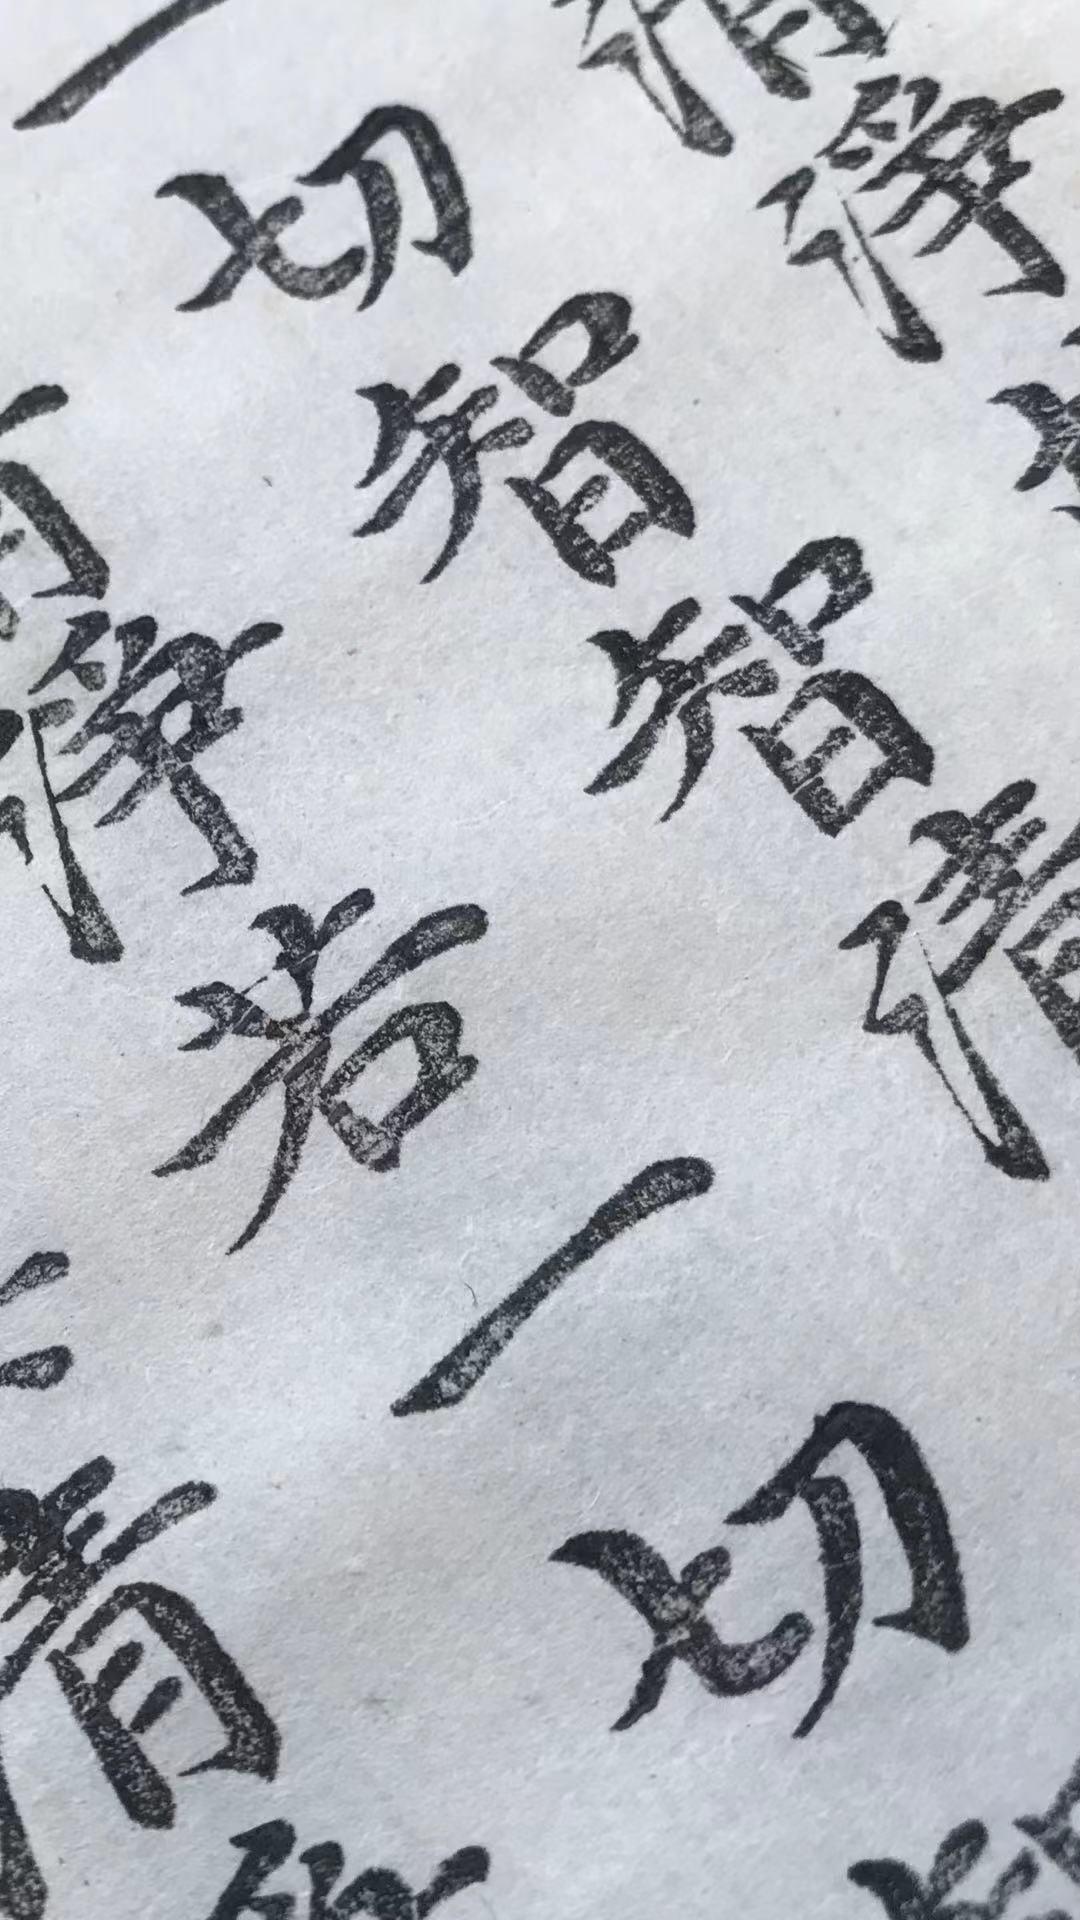 清淨
一切智智清
淨若一切
清